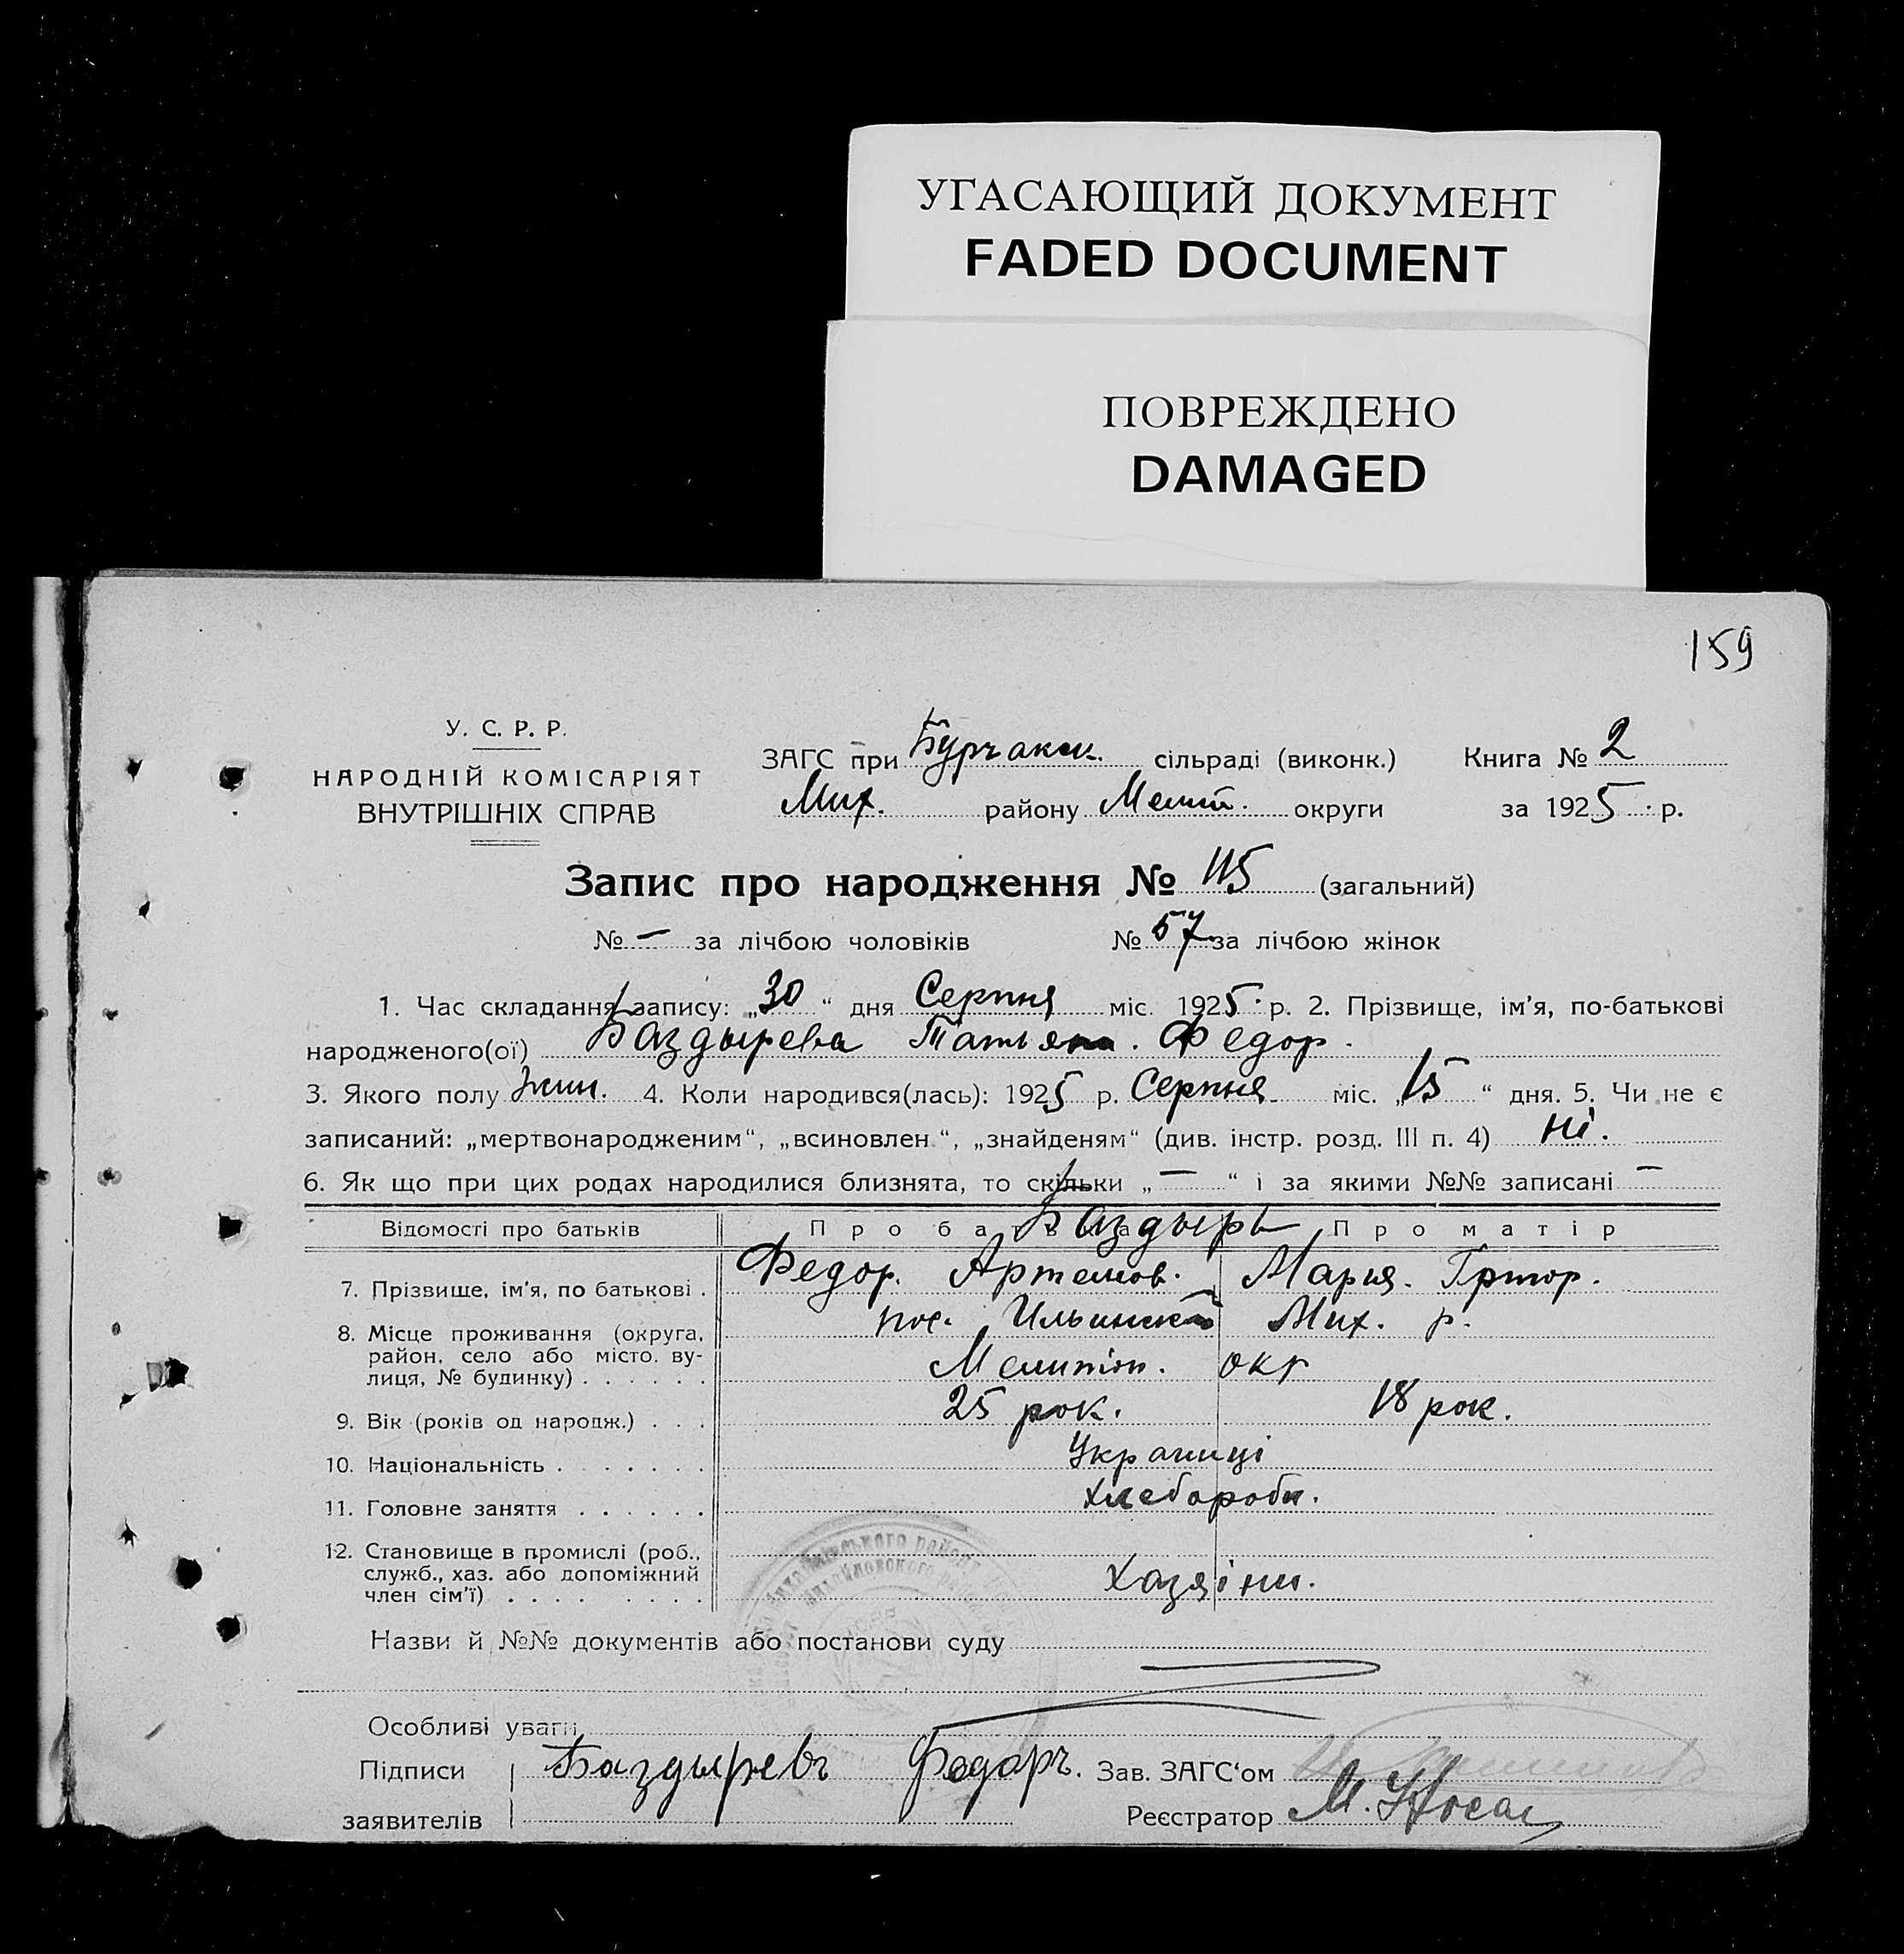 УГАСАЮЩИЙ ДОКУМЕНТ
FADED DOCUMENT
ПОВРЕЖДЕНО
DAMAGED
159
У. С. Р. Р.
НАРОДНІЙ КОМІСАРІЯТ
ВНУТРІШНІХ СПРАВ
ЗАГС при Бурчакск. сільраді (виконк.)
Мих. району Мелит. округи
Книга № 2
за 1925 р.
Запис про народження № 115 (загальний)
№ — за лічбою чоловіків № 57 за лічбою жінок
1. Час складання запису: „30“ дня Серпня міс. 1925 р. 2. Прізвище, ім'я, по-батькові
народженого(ої) Баздырева Татьяна. Федор.
3. Якого полу жин. 4. Коли народився(лась): 1925 р. Серпня міс. „15“ дня. 5. Чи не є
записаний: „мертвонародженим“, „всиновлен“, „знайденям“ (див. інстр. розд. III п. 4) ні.
6. Як що при цих родах народилися близнята, то скільки „—“ і за якими №№ записані —
Відомості про батьків Про батька Про матір
Баздырь
7. Прізвище, ім'я, по батькові . Федор. Артемов. Мария. Григор.
8. Місце проживання (округа, пос. Ильинск Мих. р.
район, село або місто, ву-
лиця, № будинку) . . . . . . Мелитоп. окр
9. Вік (років од народж.) . . . 25 рок. 18 рок.
10. Національність . . . . . . . Украинці
11. Головне заняття . . . . . . Хлебороби.
12. Становище в промислі (роб.,
служб., хаз. або допоміжний
член сім'ї) . . . . . . . . Хазяіни.
Назви й №№ документів або постанови суду
Особливі уваги
Підписи Баздыревъ Федоръ. Зав. ЗАГС'ом
заявителів Реєстратор М.